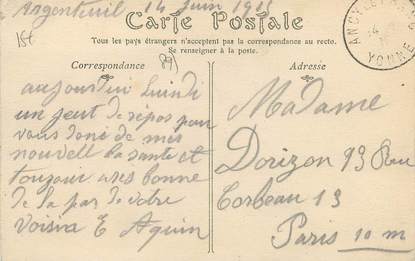 Argenteuil 14 Juin 1915
Carte Postale
Tous les pays étrangers n'acceptent pas la correspondance au recto.
Se renseigner à la poste.
Correspondance
Adresse
ANCY-LE-
YONNE
aujourdui lundi
un peut de repos pour
vous doné de mes
nouvell la santé et
toujour bonne
de la par de votre
voisina E Aquin
Madame
Dorizon 13 Rue
Corbeau 13
Paris 10 m